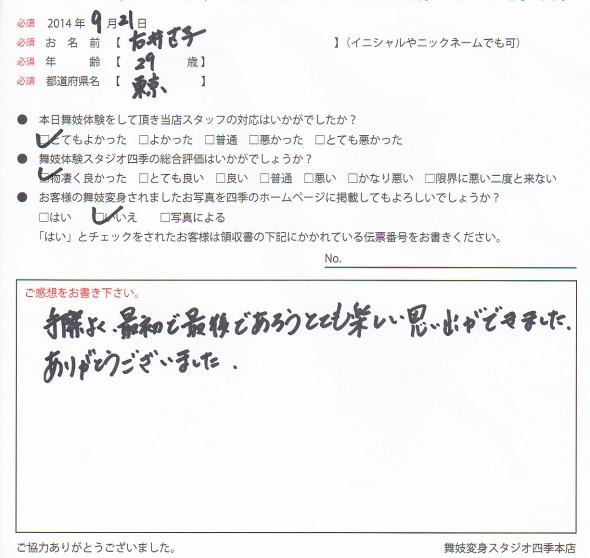 必須 2014年 9月 21日
必須 お名前【 】(イニシャルやニックネームでも可)
必須 年齢【 29 歳】
必須 都道府県名【 東京 】
● 本日舞妓体験をして頂き当店スタッフの対応はいかがでしたか?
☑とてもよかった □よかった □普通 □悪かった □とても悪かった
● 舞妓体験スタジオ四季の総合評価はいかがでしょうか?
☑物凄く良かった □とても良い □良い □普通 □悪い □かなり悪い □限界に悪い二度と来ない
● お客様の舞妓変身されましたお写真を四季のホームページに掲載してもよろしいでしょうか?
□はい ☑いいえ □写真による
「はい」とチェックをされたお客様は領収書の下記にかかれている伝票番号をお書きください。
No.
ご感想をお書き下さい。
手際よく、最初で最後であろうとても楽しい思い出ができました。
ありがとうございました。
ご協力ありがとうございました。 舞妓変身スタジオ四季本店